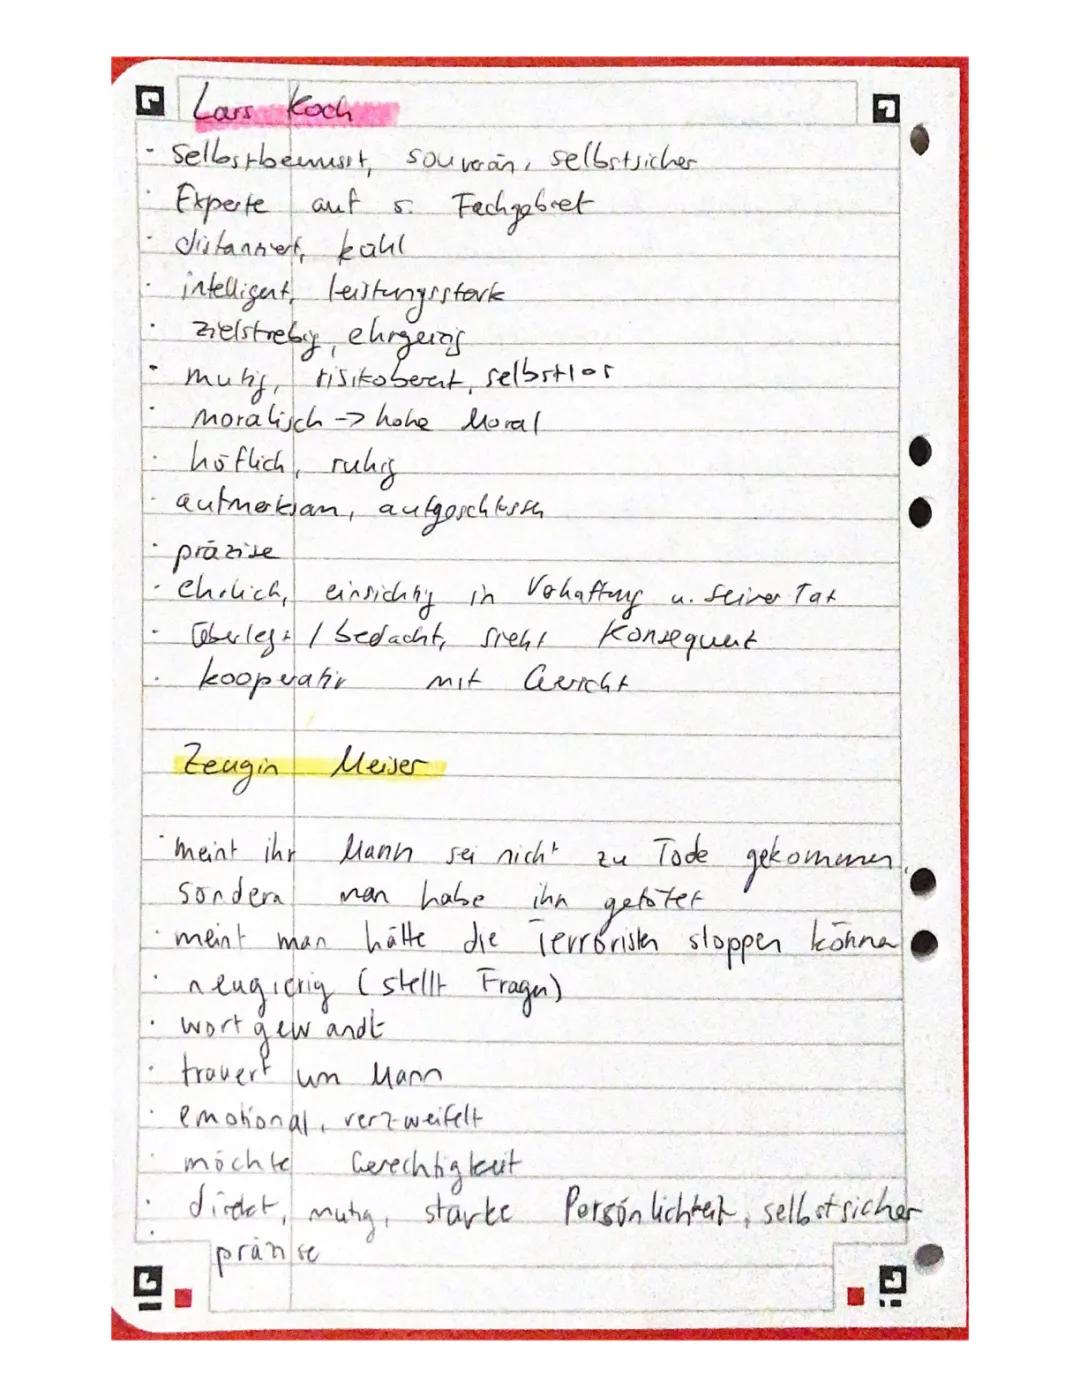 Lars Koch
- selbstbewusst, souverän, selbstsicher
· Experte auf s. Fachgebiet
· distanziert, kühl
· intelligent, leistungsstark
· zielstrebig, ehrgeizig
· mutig, risikobereit, selbstlos
· moralisch -> hohe Moral
· höflich, ruhig
· aufmerksam, aufgeschlossen
· präzise
· ehrlich, einsichtig in Verhaftung u. seiner Tat
· überlegt / bedacht, sieht Konsequent
· kooperativ mit Gericht
Zeugin Meiser
· meint ihr Mann sei nicht zu Tode gekommen,
sondern man habe ihn getötet
· meint man hätte die Terroristen stoppen können
· neugierig (stellt Fragen)
· wortgewandt
· trauert um Mann
· emotional, verzweifelt
· möchte Gerechtigkeit
· direkt, mutig, starke Persönlichkeit, selbstsicher
· präzise